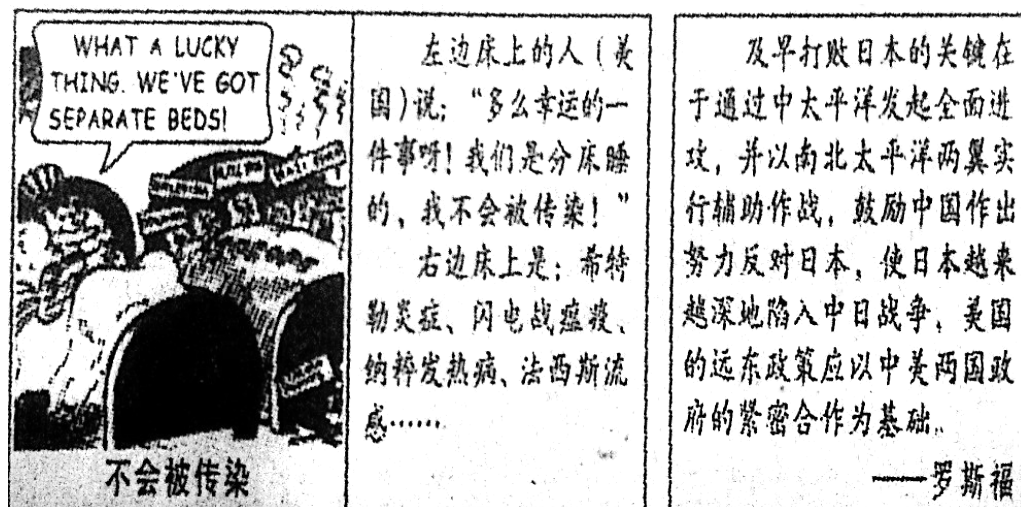 WHAT A LUCKY
THING. WE'VE GOT
SEPARATE BEDS!
不会被传染
左边床上的人（美
国）说：“多么幸运的一
件事呀！我们是分床睡
的，我不会被传染！”
右边床上是：希特
勒炎症、闪电战瘟疫、
纳粹发热病、法西斯流
感……
及早打败日本的关键在
于通过中太平洋发起全面进
攻，并以南北太平洋两翼实
行辅助作战，鼓励中国作出
努力反对日本，使日本越来
越深地陷入中日战争，美国
的远东政策应以中美两国政
府的紧密合作为基础。
——罗斯福